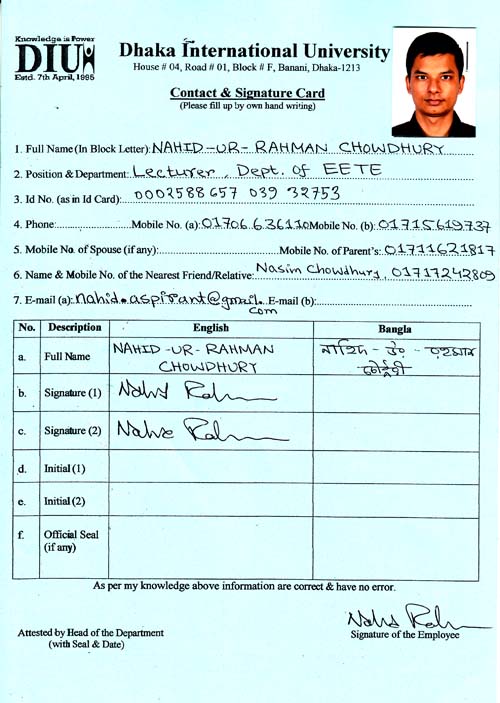 Knowledge is Power
DIU
Estd. 7th April, 1995
Dhaka International University
House # 04, Road # 01, Block # F, Banani, Dhaka-1213
Contact & Signature Card
(Please fill up by own hand writing)
1. Full Name (In Block Letter): NAHID-UR-RAHMAN CHOWDHURY
2. Position & Department: Lecturer, Dept. of EETE
3. Id No. (as in Id Card): 0002588657 039 32753
4. Phone: Mobile No. (a): 01706636110 Mobile No. (b): 01715619737
5. Mobile No. of Spouse (if any): Mobile No. of Parent's: 01711621817
6. Name & Mobile No. of the Nearest Friend/Relative: Nasim Chowdhury, 01717242809
7. E-mail (a): nahid.aspirant@gmail. E-mail (b):
com
No. Description English Bangla
a. Full Name NAHID-UR-RAHMAN CHOWDHURY নাহিদ-উর-রহমান চৌধুরী
b. Signature (1) Nahid Rah
c. Signature (2) Nahid Rah
d. Initial (1)
e. Initial (2)
f. Official Seal (if any)
As per my knowledge above information are correct & have no error.
Nahid Rah
Attested by Head of the Department Signature of the Employee
(with Seal & Date)